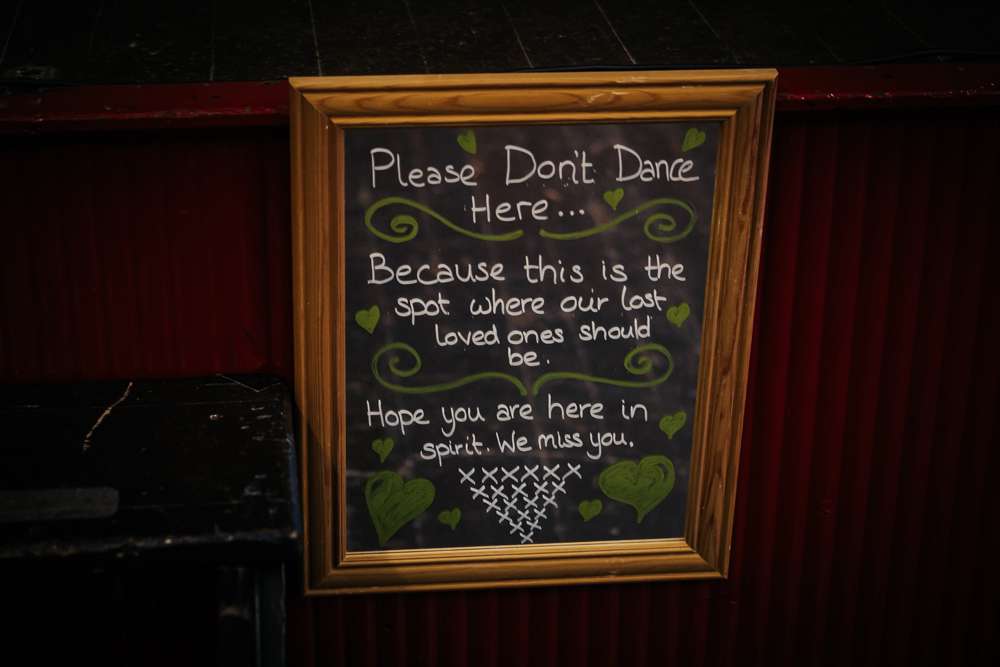 Please Don't Dance
Here...
Because this is the
spot where our lost
loved ones should
be.
Hope you are here in
spirit. We miss you.
xxxxxx
xxxxx
xxxx
xxx
xx
x